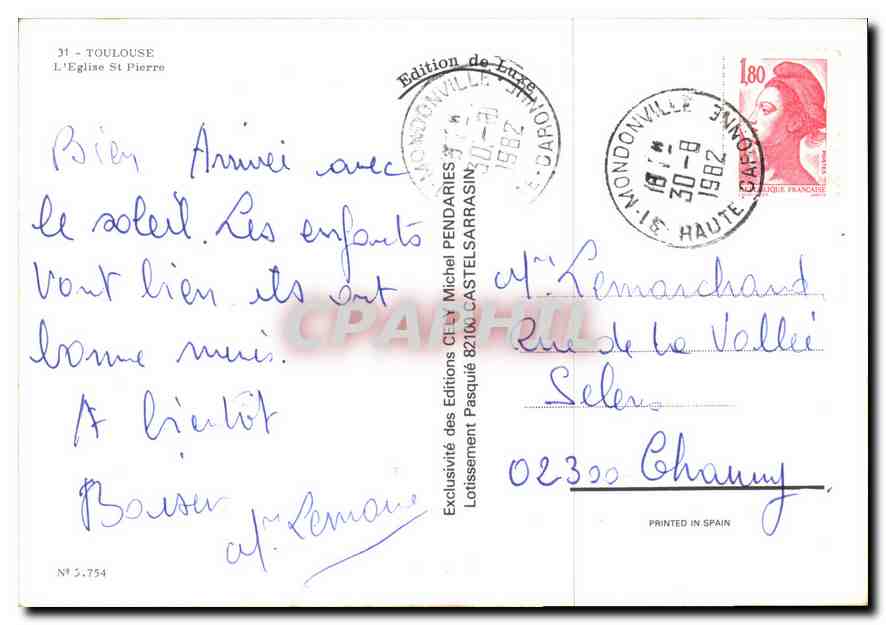 31 - TOULOUSE
L'Eglise St Pierre
Bien Arrivée avec
le soleil. Les enfants
vont bien ils ont
bonne mine.
A bientôt
Baiser
Mr Lemoine
Nº 5.754
Edition de Luxe
MONDONVILLE
30-8
1982
HAUTE-GARONNE
Exclusivité des Editions CELY Michel PENDARIES
Lotissement Pasquié 82100 CASTELSARRASIN
31-MONDONVILLE
18 H
30-8
1982
HAUTE-GARONNE
1,80
POSTES
REPUBLIQUE FRANÇAISE
Mr Lemarchand
Rue de la Vallée
Selens
02300 Chauny
PRINTED IN SPAIN
CPAPHIL